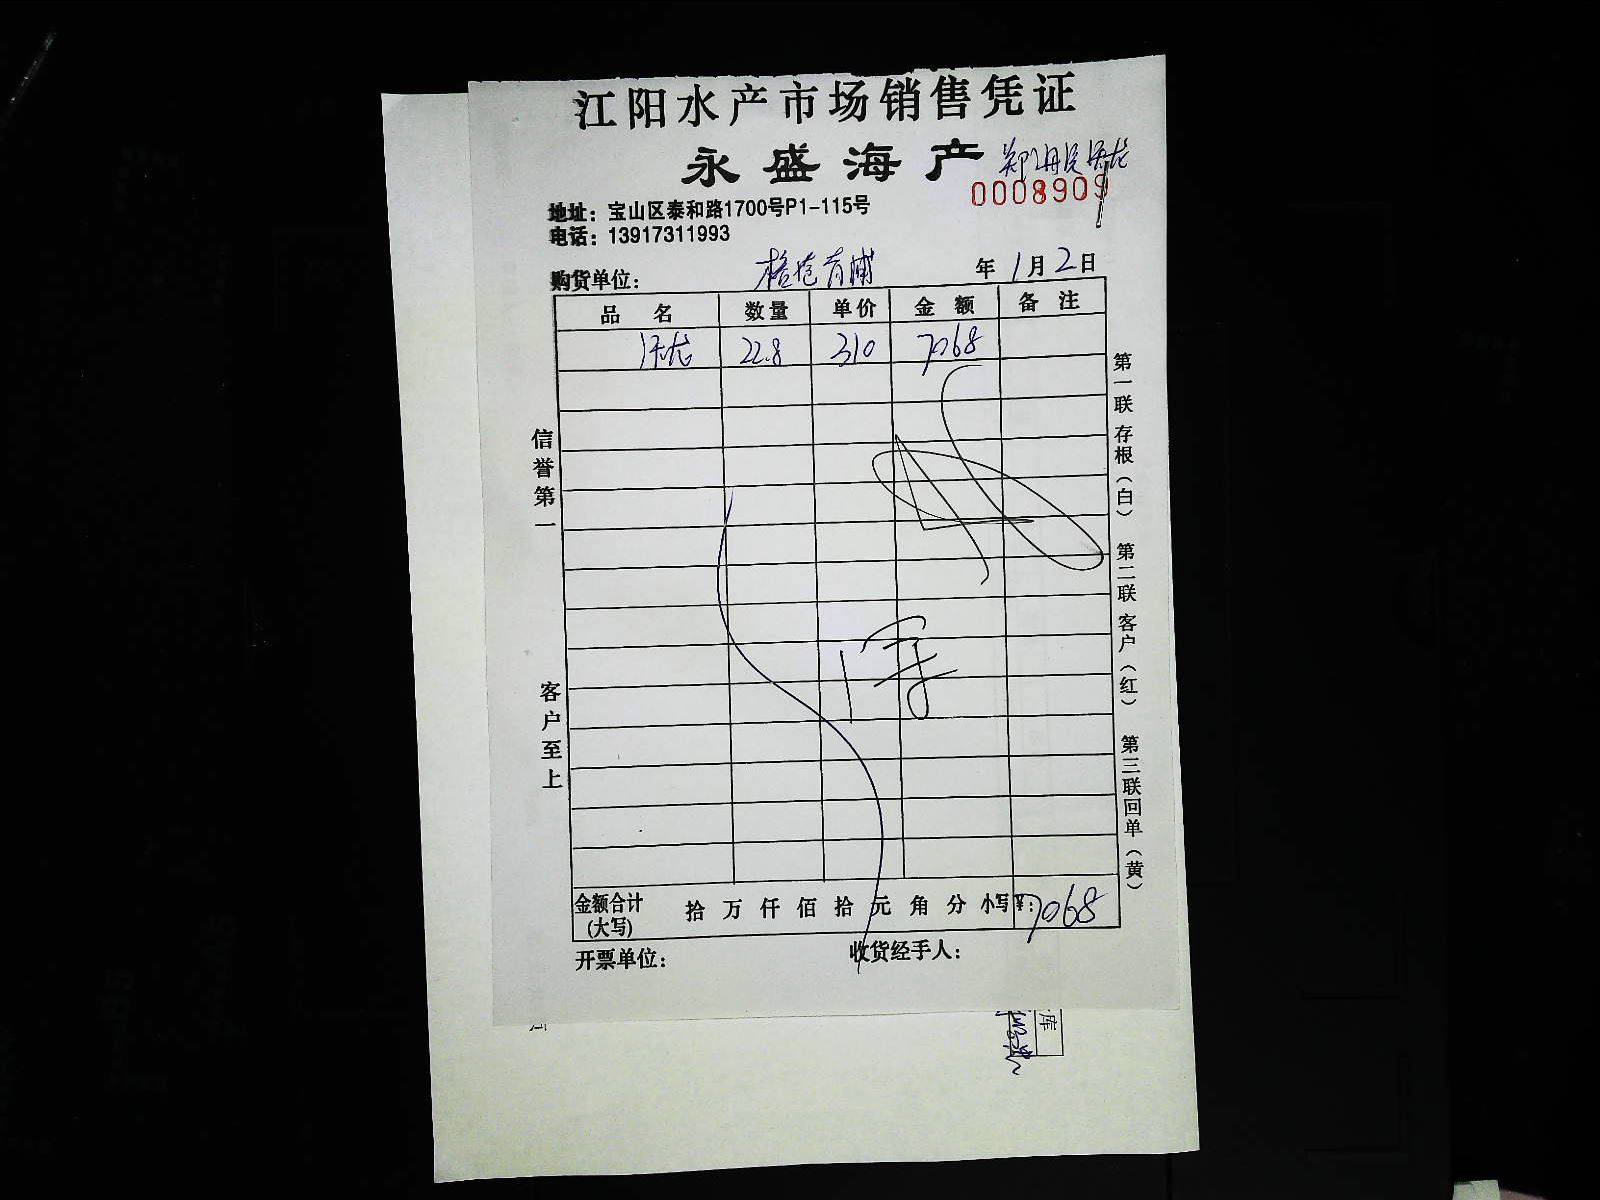 江阳水产市场销售凭证
永盛海产
0008909
地址：宝山区泰和路1700号P1-115号
电话：13917311993
购货单位： 年 1月2日
品名 数量 单价 金额 备注
22.8 310 7068
信誉第一
客户至上
第一联存根（白） 第二联客户（红） 第三联回单（黄）
金额合计(大写) 拾 万 仟 佰 拾 元 角 分 小写¥：7068
开票单位： 收货经手人：
库